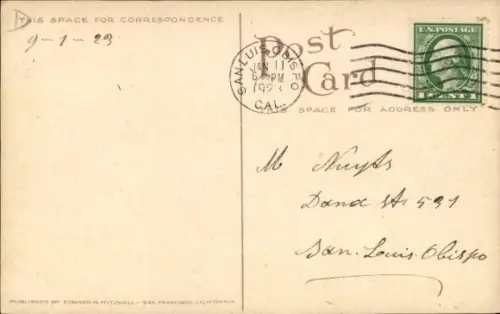 THIS SPACE FOR CORRESPONDENCE
9-1-23
Post
Card
U.S. POSTAGE
1 CENT 1
SAN LUIS OBISPO
JAN 11
PM
1923
CAL.
THIS SPACE FOR ADDRESS ONLY
M Nuyts
Dana St 531
San. Louis Obispo
PUBLISHED BY EDWARD H. MITCHELL - SAN FRANCISCO, CALIFORNIA.